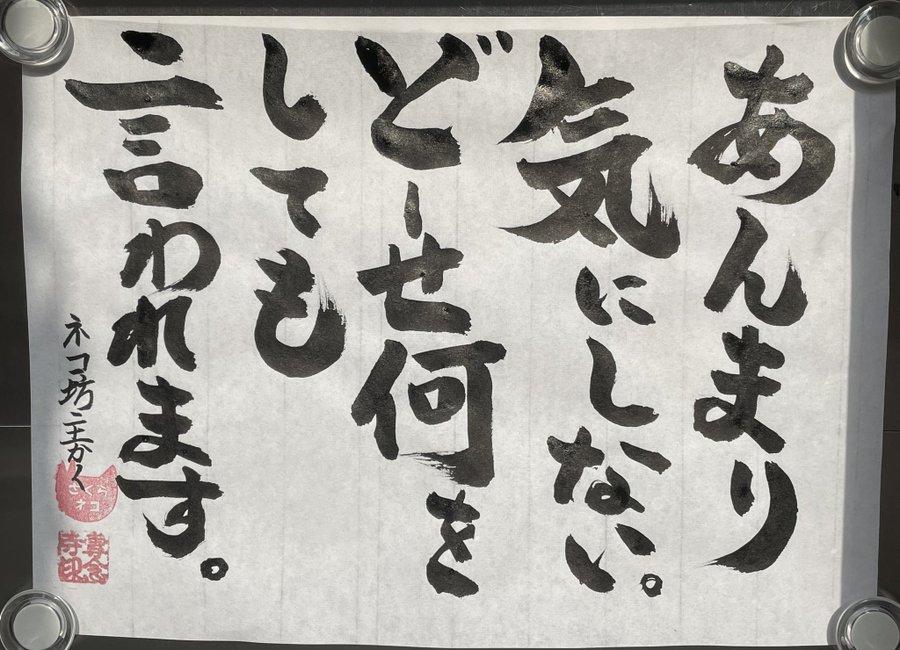 あんまり
気にしない。
どーせ何を
しても
言われます。
ネコ坊主かく
さくら
ネコ